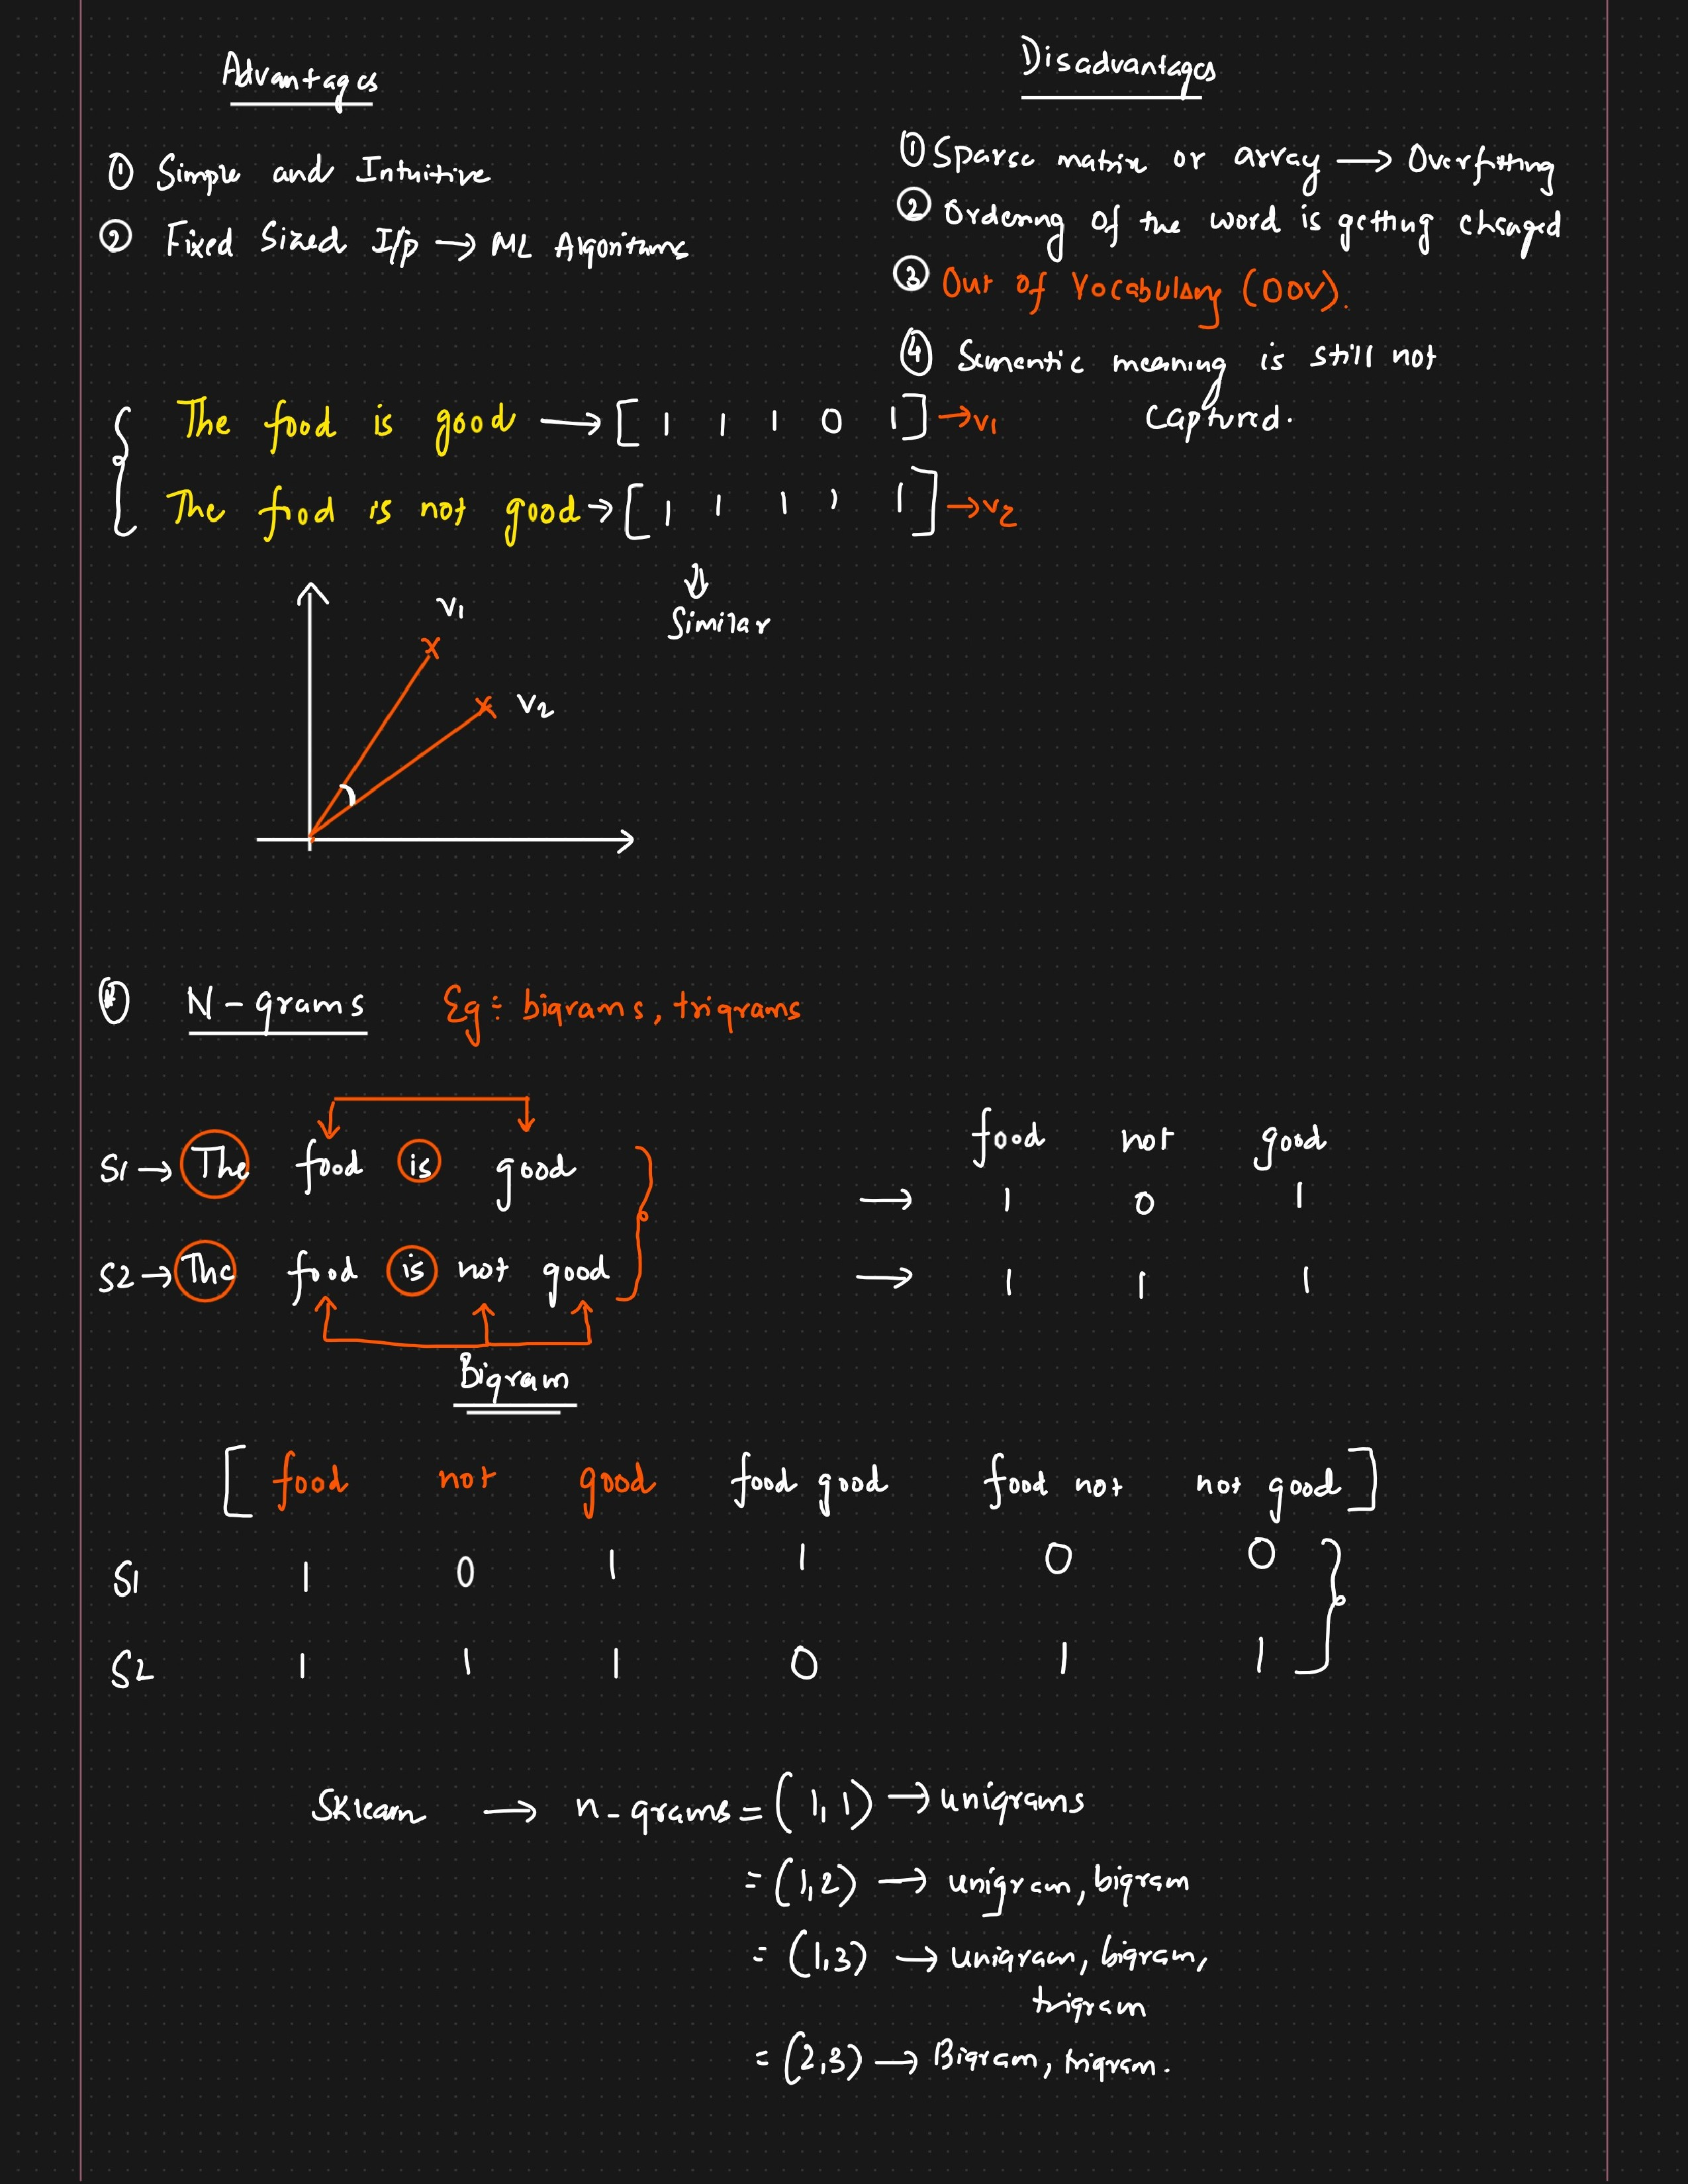 Advantages
① Simple and Intuitive
② Fixed Sized I/p → ML Algorithms
Disadvantages
① Sparse matrix or array → Overfitting
② Ordering of the word is getting changed
③ Out of Vocabulary (OOV).
④ Semantic meaning is still not
captured.
The food is good → [ 1 1 1 0 1 ] → v1
The food is not good → [ 1 1 1 1 1 ] → v2
⇓
Similar
V1
V2
N-grams Eg: bigrams, trigrams
S1 → The food is good
S2 → The food is not good
food not good
→ 1 0 1
→ 1 1 1
Bigram
[ food not good food good food not not good ]
S1 1 0 1 1 0 0
S2 1 1 1 0 1 1
Sklearn → n-grams = (1,1) → unigrams
= (1,2) → unigram, bigram
= (1,3) → unigram, bigram,
trigram
= (2,3) → Bigram, trigram.